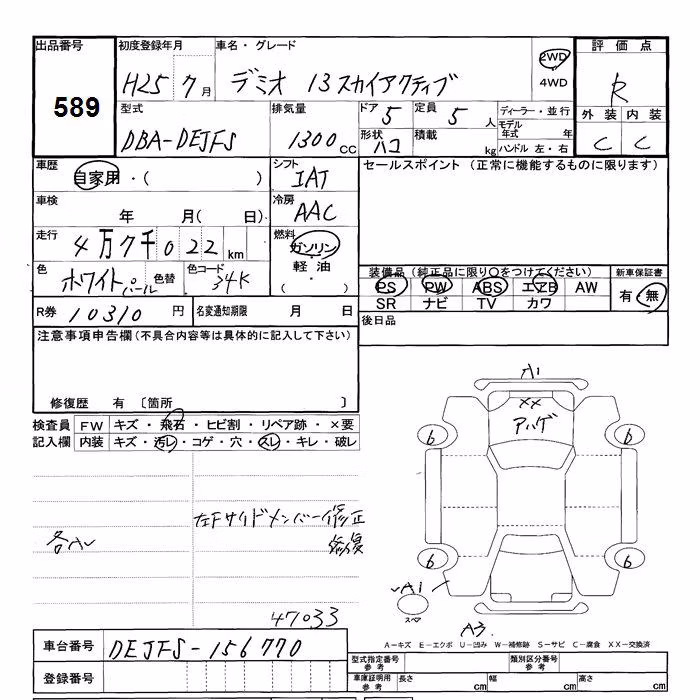 出品番号 初度登録年月 車名・グレード 2WD 評価点
589 H25 7月 デミオ 13スカイアクティブ 4WD R
型式 排気量 ドア 5 定員 5人 ディーラー・並行 外装 内装
DBA-DEJFS 1300cc 形状 ハコ 積載 kg モデル年式 年 C C
ハンドル 左・右
車歴 自家用・( ) シフト IAT セールスポイント (正常に機能するものに限ります)
車検 年 月( 日) 冷房 AAC
走行 4万7千022km 燃料 ガソリン・軽油・( )
色 ホワイトパール 色替 色コード 34K 装備品 (純正品に限り○をつけてください) 新車保証書
PS PW ABS エアB AW 有・無
SR ナビ TV カワ
R券 10310円 名変通知期限 月 日 後日品
注意事項申告欄(不具合内容等は具体的に記入して下さい)
修復歴 有 〔箇所 〕
検査員 FW キズ・飛石・ヒビ割・リペア跡・×要
記入欄 内装 キズ・汚レ・コゲ・穴・スレ・キレ・破レ
A1
XX
アハゲ
6 6
左Fサイドメンバー修正
修復
各ハ
6 6
A1
スペア
47033
A3
A−キズ E−エクボ U−凹み W−補修跡 S−サビ C−腐食 XX−交換済
車台番号 DEJFS-156770
型式指定番号 参考 類別区分番号 参考
登録番号 車庫証明用 参考 長さ cm 幅 cm 高さ cm